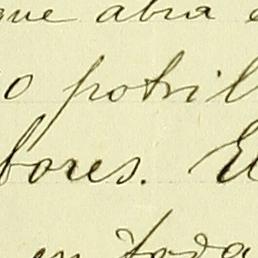 que abra
o potril
bores. El
en toda